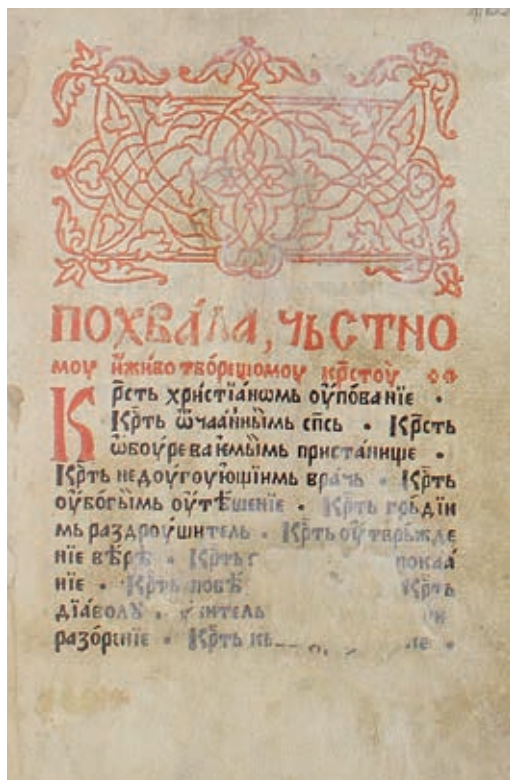 ПОХВА́ЛА, ЧЬСТНО
моу и҆жи́вотво́рещомоу кр҃стоу̀
Кр҃сть хрїстїа́нѡмь оу҆пова́нїе •
Кр҃ть ѿчаа́нны̏имь сп҃сь • Кр҃сть
ѡ҆боурева́ꙗ҆мы̏имь приста́нище •
Кр҃ть недоу́гоую҆щїимь вра́чь • Кр҃ть
оу҆бо́гы̏имь оу҆тѣ́шенїе • Кр҃ть грь́дїи
мь раздроу́шитель • Кр҃ть оу҆тврь́жде
нїе вѣ́рѣ • Кр҃ть покаа́
нїе • Кр҃ть Кр҃ть
дїа́волꙋ •
разо́рнїе • Кр҃ть